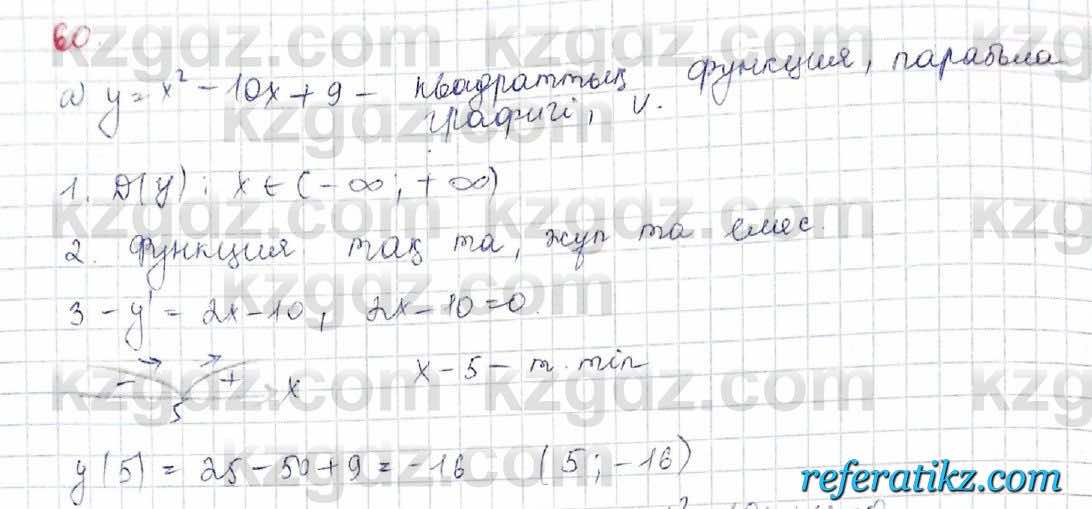 60.
а) y = x² - 10x + 9 - квадраттың функция, парабола
графигі, v.
1. D(y): x ∈ (-∞; +∞)
2. Функция тақ та, жұп та емес.
3 - y' = 2x - 10, 2x - 10 = 0.
- + x x - 5 - т. min
5
y(5) = 25 - 50 + 9 = -16 (5; -16)
kzgdz.com
referatikz.com